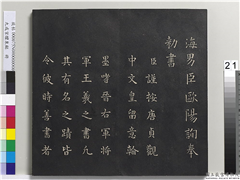 海易臣歐陽詢奉
勅書
臣謹按唐貞觀
中文皇留意翰
墨嘗晉右軍將
軍王羲之書凡
其有名之蹟皆
令彼時善書者
21